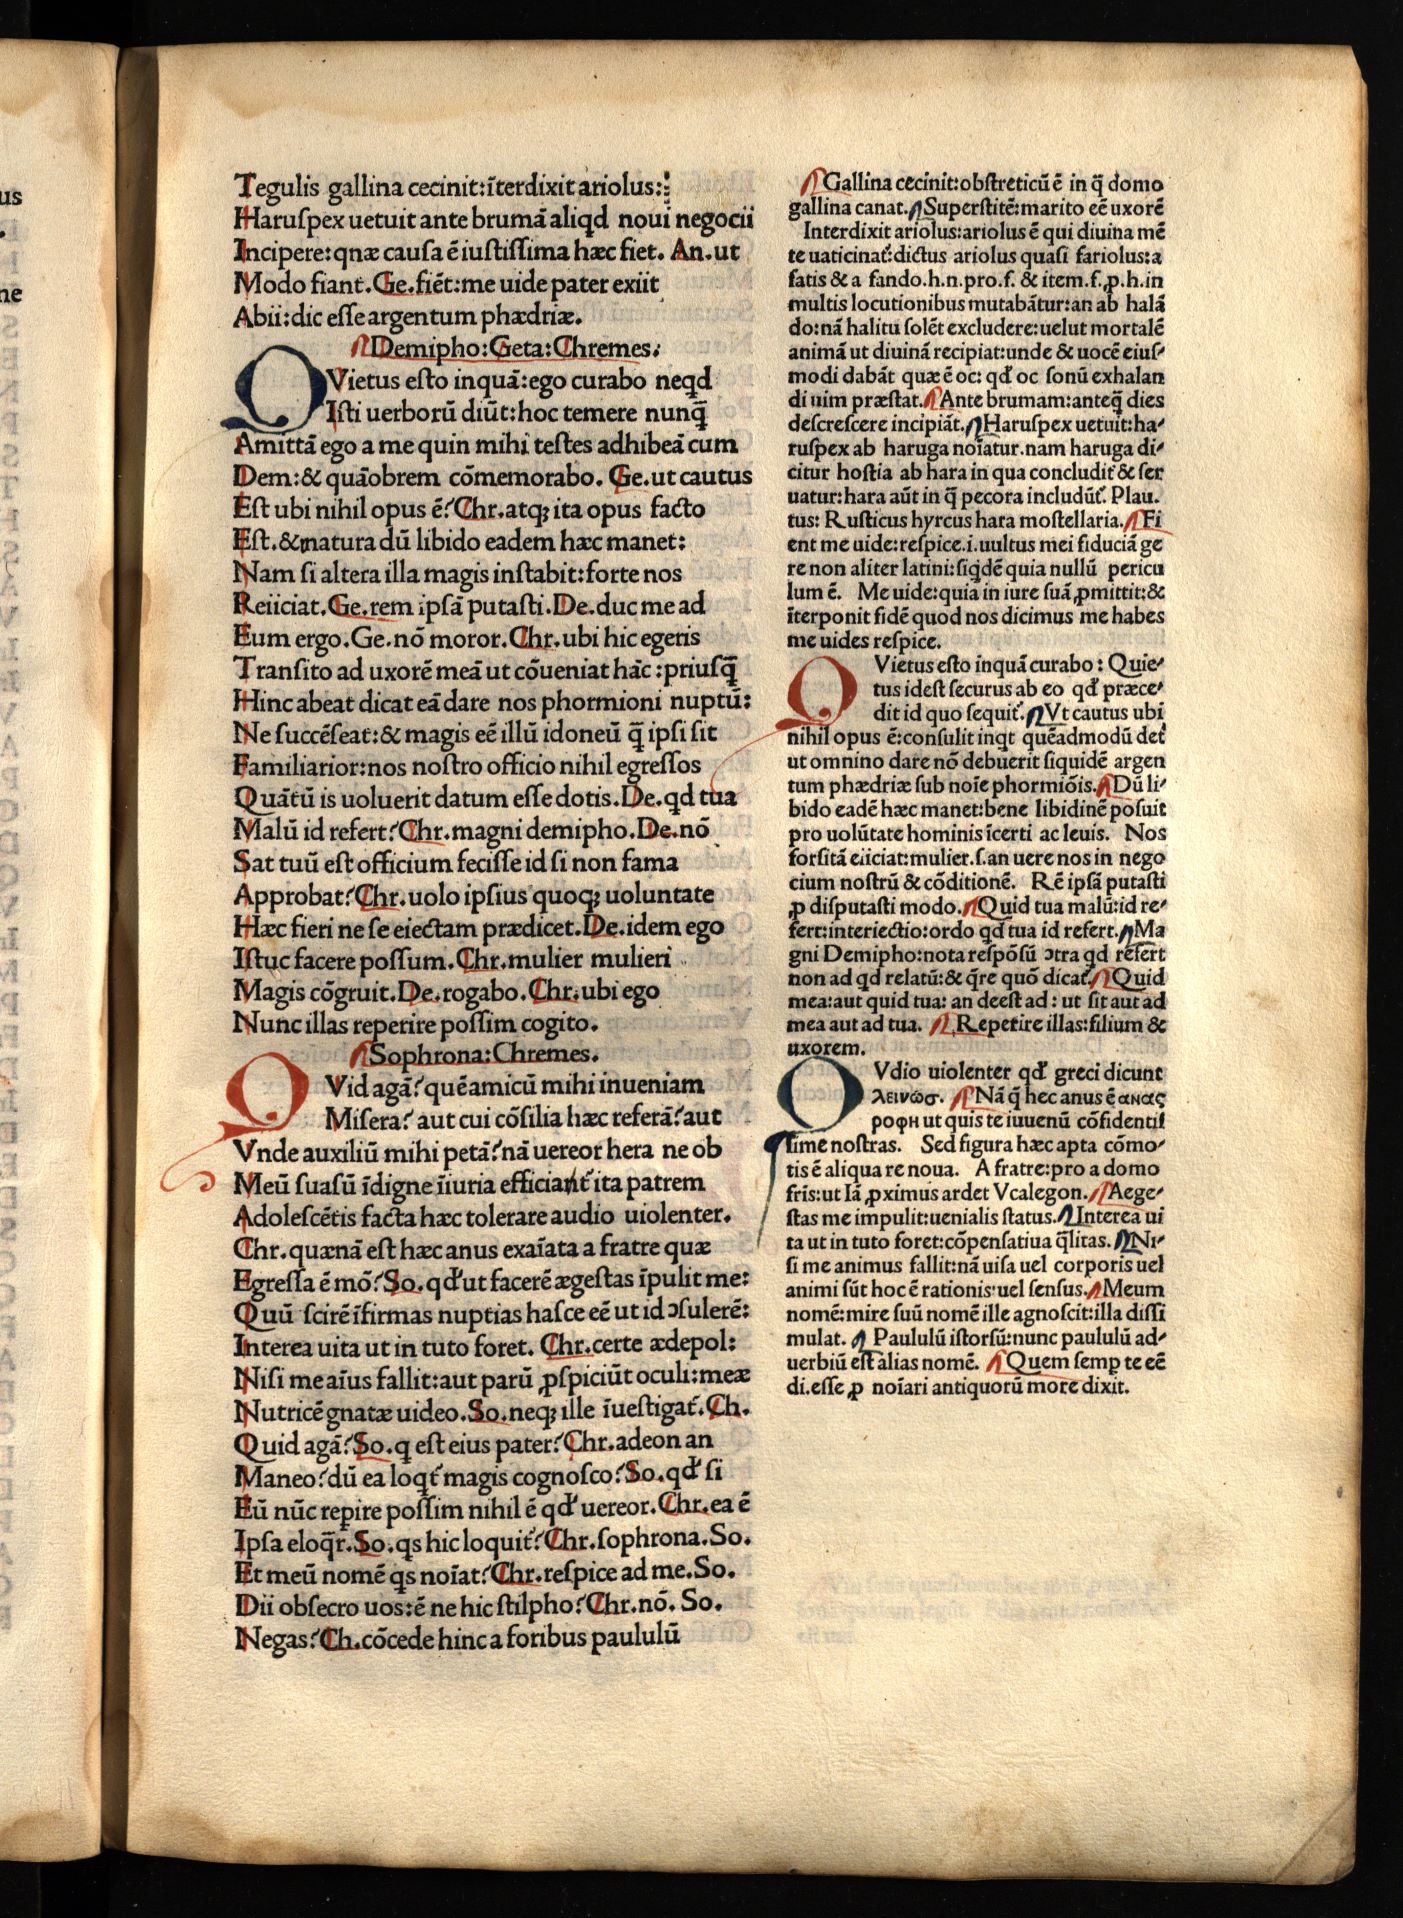 Tegulis gallina cecinit:īterdixit ariolus:
Haruſpex uetuit ante brumā aliqd noui negocii
Incipere:qnæ cauſa ē iuſtiſſima hæc fiet. An.ut
Modo fiant.Ge.fiēt:me uide pater exiit
Abii:dic eſſe argentum phædriæ.
Demipho:Geta:Chremes.
QVietus eſto inquā:ego curabo neqd
Iſti uerborū diūt:hoc temere nunq̄
Amittā ego a me quin mihi teſtes adhibeā cum
Dem:& quāobrem cōmemorabo. Ge.ut cautus
Eſt ubi nihil opus ē?Chr.atqꝫ ita opus facto
Eſt.&matura dū libido eadem hæc manet:
Nam ſi altera illa magis inſtabit:forte nos
Reiiciat.Ge.rem ipſā putaſti.De.duc me ad
Eum ergo.Ge.nō moror.Chr.ubi hic egeris
Tranſito ad uxorē meā ut cōueniat hāc:priuſq̄
Hinc abeat dicat eā dare nos phormioni nuptū:
Ne ſuccēſeat:& magis eē illū idoneū q̄ ipſi ſit
Familiarior:nos noſtro officio nihil egreſſos
Quātū is uoluerit datum eſſe dotis.De.qd tua
Malū id refert?Chr.magni demipho.De.nō
Sat tuū eſt officium feciſſe id ſi non fama
Approbat?Chr.uolo ipſius quoqꝫ uoluntate
Hæc fieri ne ſe eiectam prædicet.De.idem ego
Iſtuc facere poſſum.Chr.mulier mulieri
Magis cōgruit.De.rogabo.Chr.ubi ego
Nunc illas reperire poſſim cogito.
Sophrona:Chremes.
QVid agā?quē amicū mihi inueniam
Miſera? aut cui cōſilia hæc referā?aut
Vnde auxiliū mihi petā?nā uereor hera ne ob
Meū ſuaſū īdigne īiuria efficiant᷑ ita patrem
Adoleſcētis facta hæc tolerare audio uiolenter.
Chr.quænā eſt hæc anus exaīata a fratre quæ
Egreſſa ē mō?So.qđ ut facerē ægeſtas īpulit me:
Quū ſcirē īfirmas nuptias haſce eē ut id ↄſulerē:
Interea uita ut in tuto foret. Chr.certe ædepol:
Niſi me aīus fallit:aut parū ꝓſpiciūt oculi:meæ
Nutricē gnatæ uideo.So.neqꝫ ille īueſtigat᷑.Ch.
Quid agā?So.q eſt eius pater?Chr.adeon an
Maneo?dū ea loqt᷑ magis cognoſco?So.qđ ſi
Eū nūc reꝑire poſſim nihil ē qđ uereor.Chr.ea ē
Ipſa eloq̄r.So.qs hic loquit᷑?Chr.ſophrona.So.
Et meū nomē qs noīat?Chr.reſpice ad me.So.
Dii obſecro uos:ē ne hic ſtilpho?Chr.nō. So.
Negas?Ch.cōcede hinc a foribus paululū
Gallina cecinit:obſtreticū ē in q̄ domo
gallina canat.Superſtitē:marito eē uxorē
Interdixit ariolus:ariolus ē qui diuina mē
te uaticinat᷑:dictus ariolus quaſi fariolus:a
fatis & a fando.h.n.pro.f. & item.f.ꝓ.h.in
multis locutionibus mutabāt᷑ur:an ab halā
do:nā halitu ſolēt excludere:uelut mortalē
animā ut diuinā recipiat:unde & uocē eiuſ⸗
modi dabāt quæ ē oc: qđ oc ſonū exhalan
di uim præſtat.Ante brumam:anteq̄ dies
deſcreſcere incipiāt.Haruſpex uetuit:ha⸗
ruſpex ab haruga noīatur.nam haruga di⸗
citur hoſtia ab hara in qua concludit᷑ & ſer
uatur:hara aūt in q̄ pecora includūt᷑. Plau.
tus: Ruſticus hyrcus hara moſtellaria.Fi
ent me uide:reſpice.i.uultus mei fiduciā ge
re non aliter latini:ſiqdē quia nullū pericu
lum ē. Me uide:quia in iure ſuā ꝓmittit:&
īterponit fidē quod nos dicimus me habes
me uides reſpice.
QVietus eſto inquā curabo: Quie⸗
tus ideſt ſecurus ab eo qđ præce⸗
dit id quo ſequit᷑.Vt cautus ubi
nihil opus ē:conſulit inqt quēadmodū det᷑
ut omnino dare nō debuerit ſiquidē argen
tum phædriæ ſub noīe phormiōis.Dū li⸗
bido eadē hæc manet:bene libidinē poſuit
pro uolūtate hominis īcerti ac leuis. Nos
forſitā eiiciat:mulier.ſ.an uere nos in nego
cium noſtrū & cōditionē. Rē ipſā putaſti
ꝓ diſputaſti modo.Quid tua malū:id re⸗
fert:interiectio:ordo qđ tua id refert.Ma
gni Demipho:nota reſpōſū ↄtra qd refert
non ad qd relatū:& q̄re quō dicat᷑.Quid
mea:aut quid tua: an deeſt ad: ut ſit aut ad
mea aut ad tua. Reperire illas:filium &
uxorem.
OVdio uiolenter qđ greci dicunt
λεινωσ. Nā q̄ hec anus ē ανας
ροφη ut quis te iuuenū cōfidentiſ
ſime noſtras. Sed figura hæc apta cōmo⸗
tis ē aliqua re noua. A fratre:pro a domo
fris:ut Iā ꝓximus ardet Vcalegon.Aege⸗
ſtas me impulit:uenialis ſtatus.Interea ui
ta ut in tuto foret:cōpenſatiua q̄litas.Ni⸗
ſi me animus fallit:nā uiſa uel corporis uel
animi ſūt hoc ē rationis uel ſenſus.Meum
nomē:mire ſuū nomē ille agnoſcit:illa diſſi
mulat. Paululū iſtorſū:nunc paululū ad⸗
uerbiū eſt alias nomē. Quem ſemꝑ te eē
di.eſſe ꝓ noīari antiquorū more dixit.